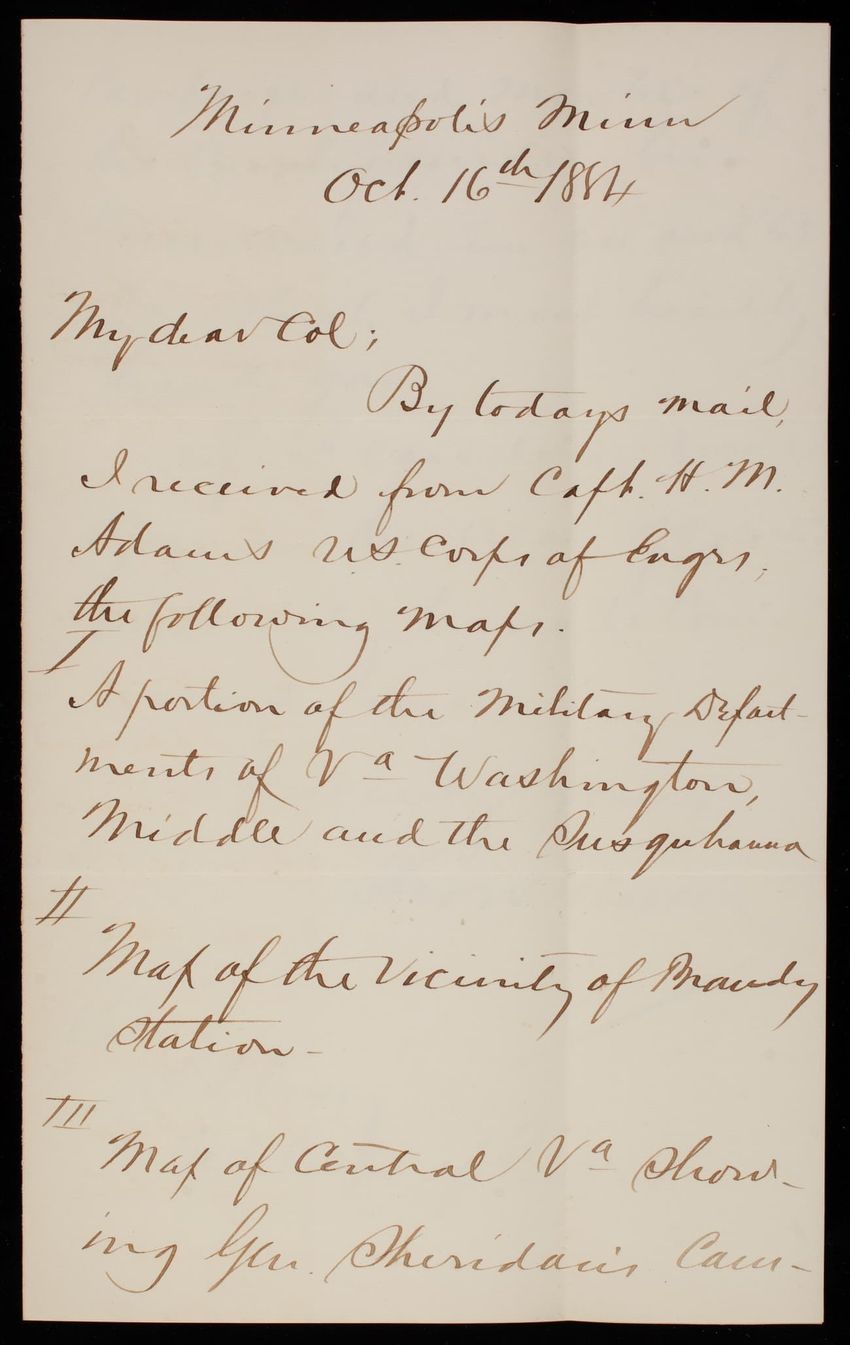 Minneapolis Minn
Oct. 16th 1884
My dear Col;
By todays mail,
I received from Capt. H. M.
Adams U.S. Corps of Engrs,
the following maps.
I
A portion of the Military Depart-
ments of Va Washington,
Middle and the Susquhanna
II
Map of the Vicinity of Brandy
Station -
III
Map of Central Va show-
ing Gen. Sheridan's Cam-